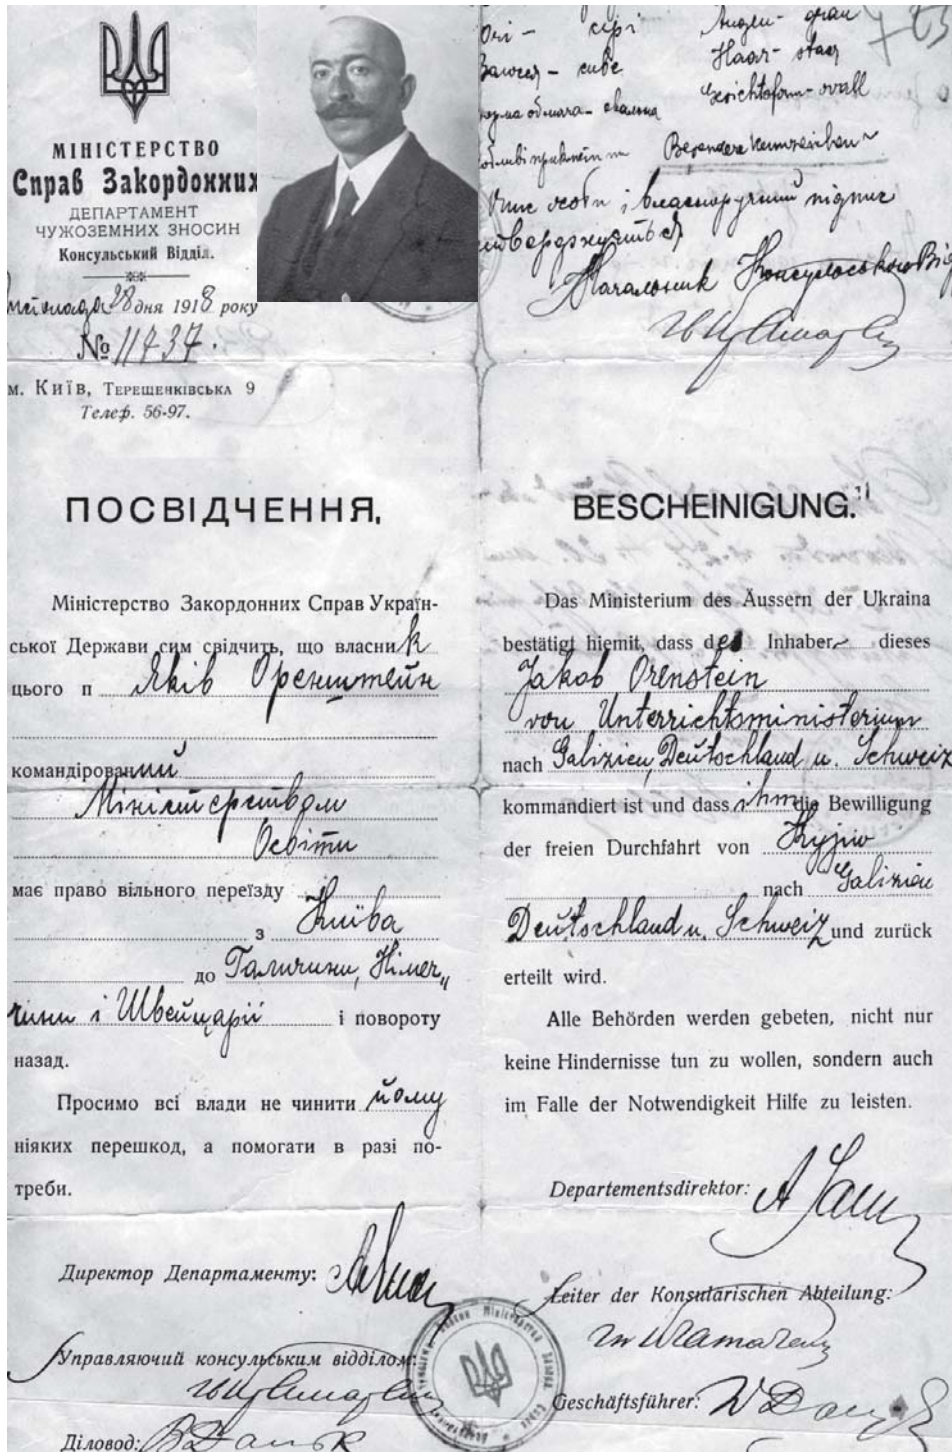 МІНІСТЕРСТВО
Справ Закордонних
ДЕПАРТАМЕНТ
ЧУЖОЗЕМНИХ ЗНОСИН
Консульський Відділ.
28 дня 1918 року
№ 11437.
м. Київ, Терещенківська 9
Телеф. 56-97.
Очі – сірі
Волосся – сиве
форма обличча – овальна
Augen – grau
Haar –
Gesichtsform – ovall
Besondere Kennzeichen
Опис особи і власноручний підпис
стверджується
Начальник Консульського Від
ПОСВІДЧЕННЯ,
Міністерство Закордонних Справ Україн-
ської Держави сим свідчить, що власник
цього п Яків Оренштейн
командірований
Міністерством
Освіти
має право вільного переїзду
з Київа
до Галичини, Німеч„
чини і Швейцарії і повороту
назад.
Просимо всі влади не чинити йому
ніяких перешкод, а помогати в разі по-
треби.
Директор Департаменту:
Управляючий консульським відділом:
Діловод:
BESCHEINIGUNG.
Das Ministerium des Äussern der Ukraina
bestätigt hiemit, dass der Inhaber dieses
Jakob Orenstein
von Unterrichtsministerium
nach Galizien, Deutschland u. Schweiz
kommandiert ist und dass ihm die Bewilligung
der freien Durchfahrt von Kyjiw
nach Galizien
Deutschland u. Schweiz und zurück
erteilt wird.
Alle Behörden werden gebeten, nicht nur
keine Hindernisse tun zu wollen, sondern auch
im Falle der Notwendigkeit Hilfe zu leisten.
Departementsdirektor:
Leiter der Konsularischen Abteilung:
Geschäftsführer: